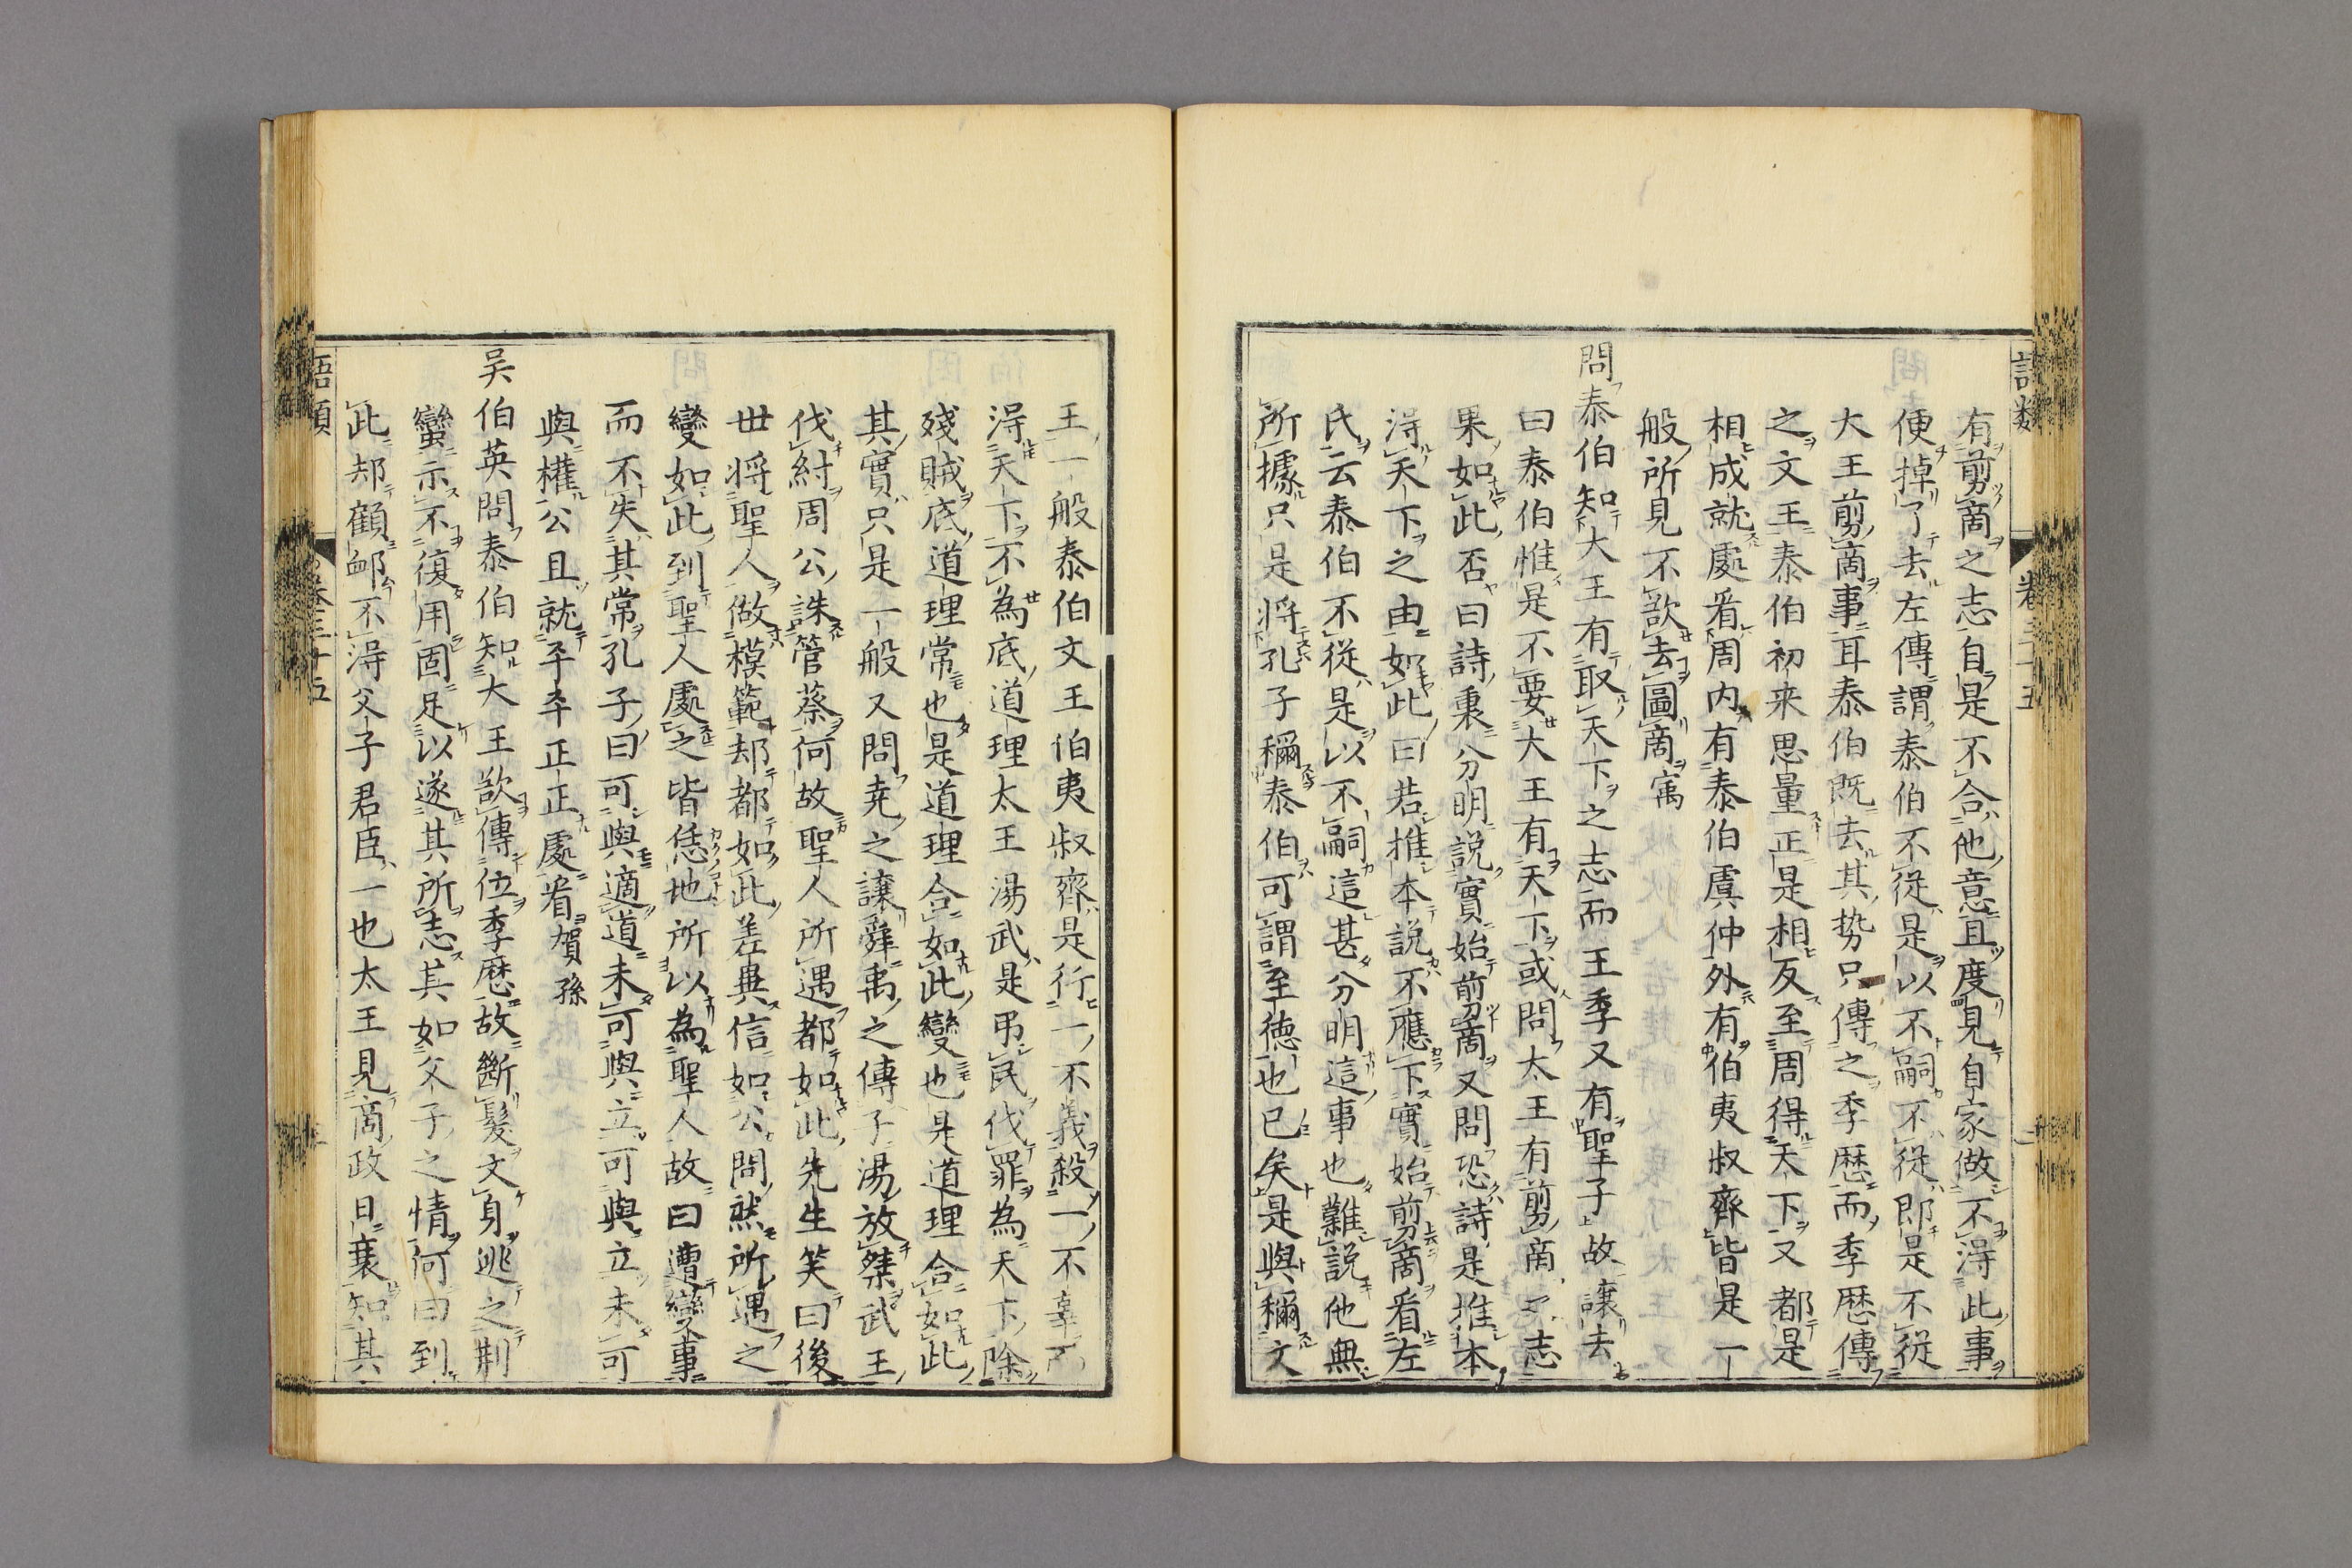 語類 卷三十五
有剪商之志自是不合他意且度見自家做不得此事
便掉了去左傳謂泰伯不從是以不嗣不從即是不從
大王剪商事耳泰伯既去其勢只傳之季歷而季歷傳
之文王泰伯初来思量正是相反至周得天下又都是
相成就處看周内有泰伯虞仲外有伯夷叔齊皆是一
般所見不欲去圖商㝢
問泰伯知大王有取天下之志而王季又有聖子故讓去
曰泰伯惟是不要大王有天下或問太王有剪商之志
果如此否曰詩裏分明說實始剪商又問恐詩是推本
淂天下之由如此曰若推本說不應下實始剪商看左
氏云泰伯不從是以不嗣這甚分明這事也難說他無
所據只是将孔子稱泰伯可謂至徳也已矣是與稱文
王一般泰伯文王伯夷叔齊是行一不義殺一不辜而
淂天下不為底道理太王湯武是弔民伐罪為天下除
殘賊底道理常也是道理合如此變也是道理合如此
其實只是一般又問尭之讓舜禹之傳子湯放桀武王
伐紂周公誅管蔡何故聖人所遇都如此先生笑曰後
世将聖人做模範却都如此差異信如公問然所遇之
變如此到聖人處之皆恁地所以為聖人故曰遭變事
而不失其常孔子曰可與適道未可與立可與立未可
與權公且就平平正正處看賀孫
吴伯英問泰伯知大王欲傳位季歷故斷髮文身逃之荆
蠻示不復用固足以遂其所志其如父子之情何曰到
此却顧䘏不淂父子君臣一也太王見商政日衰知其
語類 卷三十五